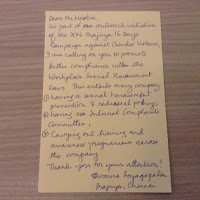 Dear Ms. Neotia,
As part of our outreach initiative
of the 2016 Prajnya 16 Days
Campaign against Gender Violence,
I am calling on you to promote
better compliance with the
Workplace Sexual Harassment
laws. This entails every company
① having a sexual harassment
prevention & redressal policy,
② having an Internal Complaints
Committee,
③ Carrying out training and
awareness programmes across
the company.
Thank you for your attention!
Rajagopalan
Prajnya, Chennai